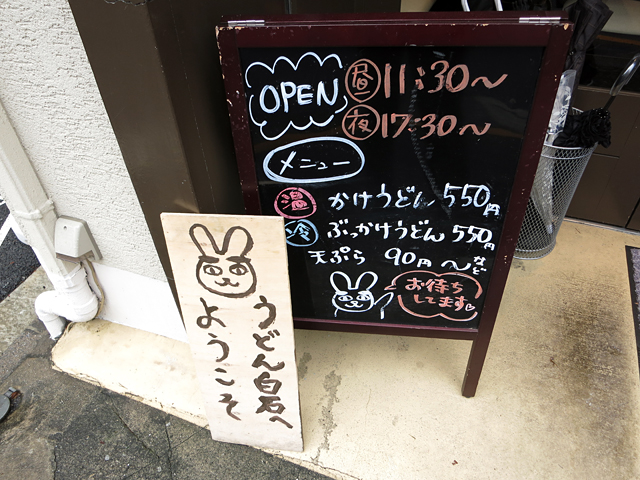 OPEN 昼 11:30〜
夜 17:30〜
メニュー
温 かけうどん 550円
冷 ぶっかけうどん 550円
天ぷら 90円〜など
お待ち
してます
うどん白石へ
ようこそ